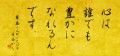 心は
誰でも
豊かに
なれるん
です